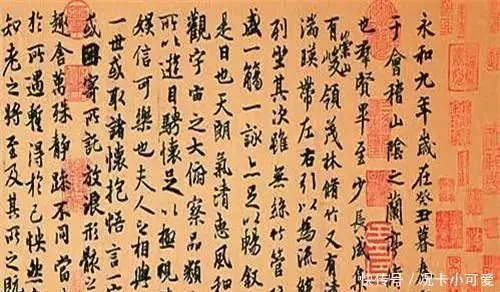 永和九年歲在癸丑暮春
于會稽山陰之蘭亭
也羣賢畢至少長咸
有崇山峻領茂林脩竹又有清
湍暎帶左右引以為流
列坐其次雖無絲竹管
盛一觴一詠亦足以暢敘
是日也天朗氣清惠風和
觀宇宙之大俯察品類
所以遊目騁懷足以極視
娛信可樂也夫人之相與
一世或取諸懷抱悟言一
或因寄所託放浪形骸之
趣舍萬殊靜躁不同當
於所遇暫得於己快然
知老之將至及其所之既
快传号/况卡小可爱